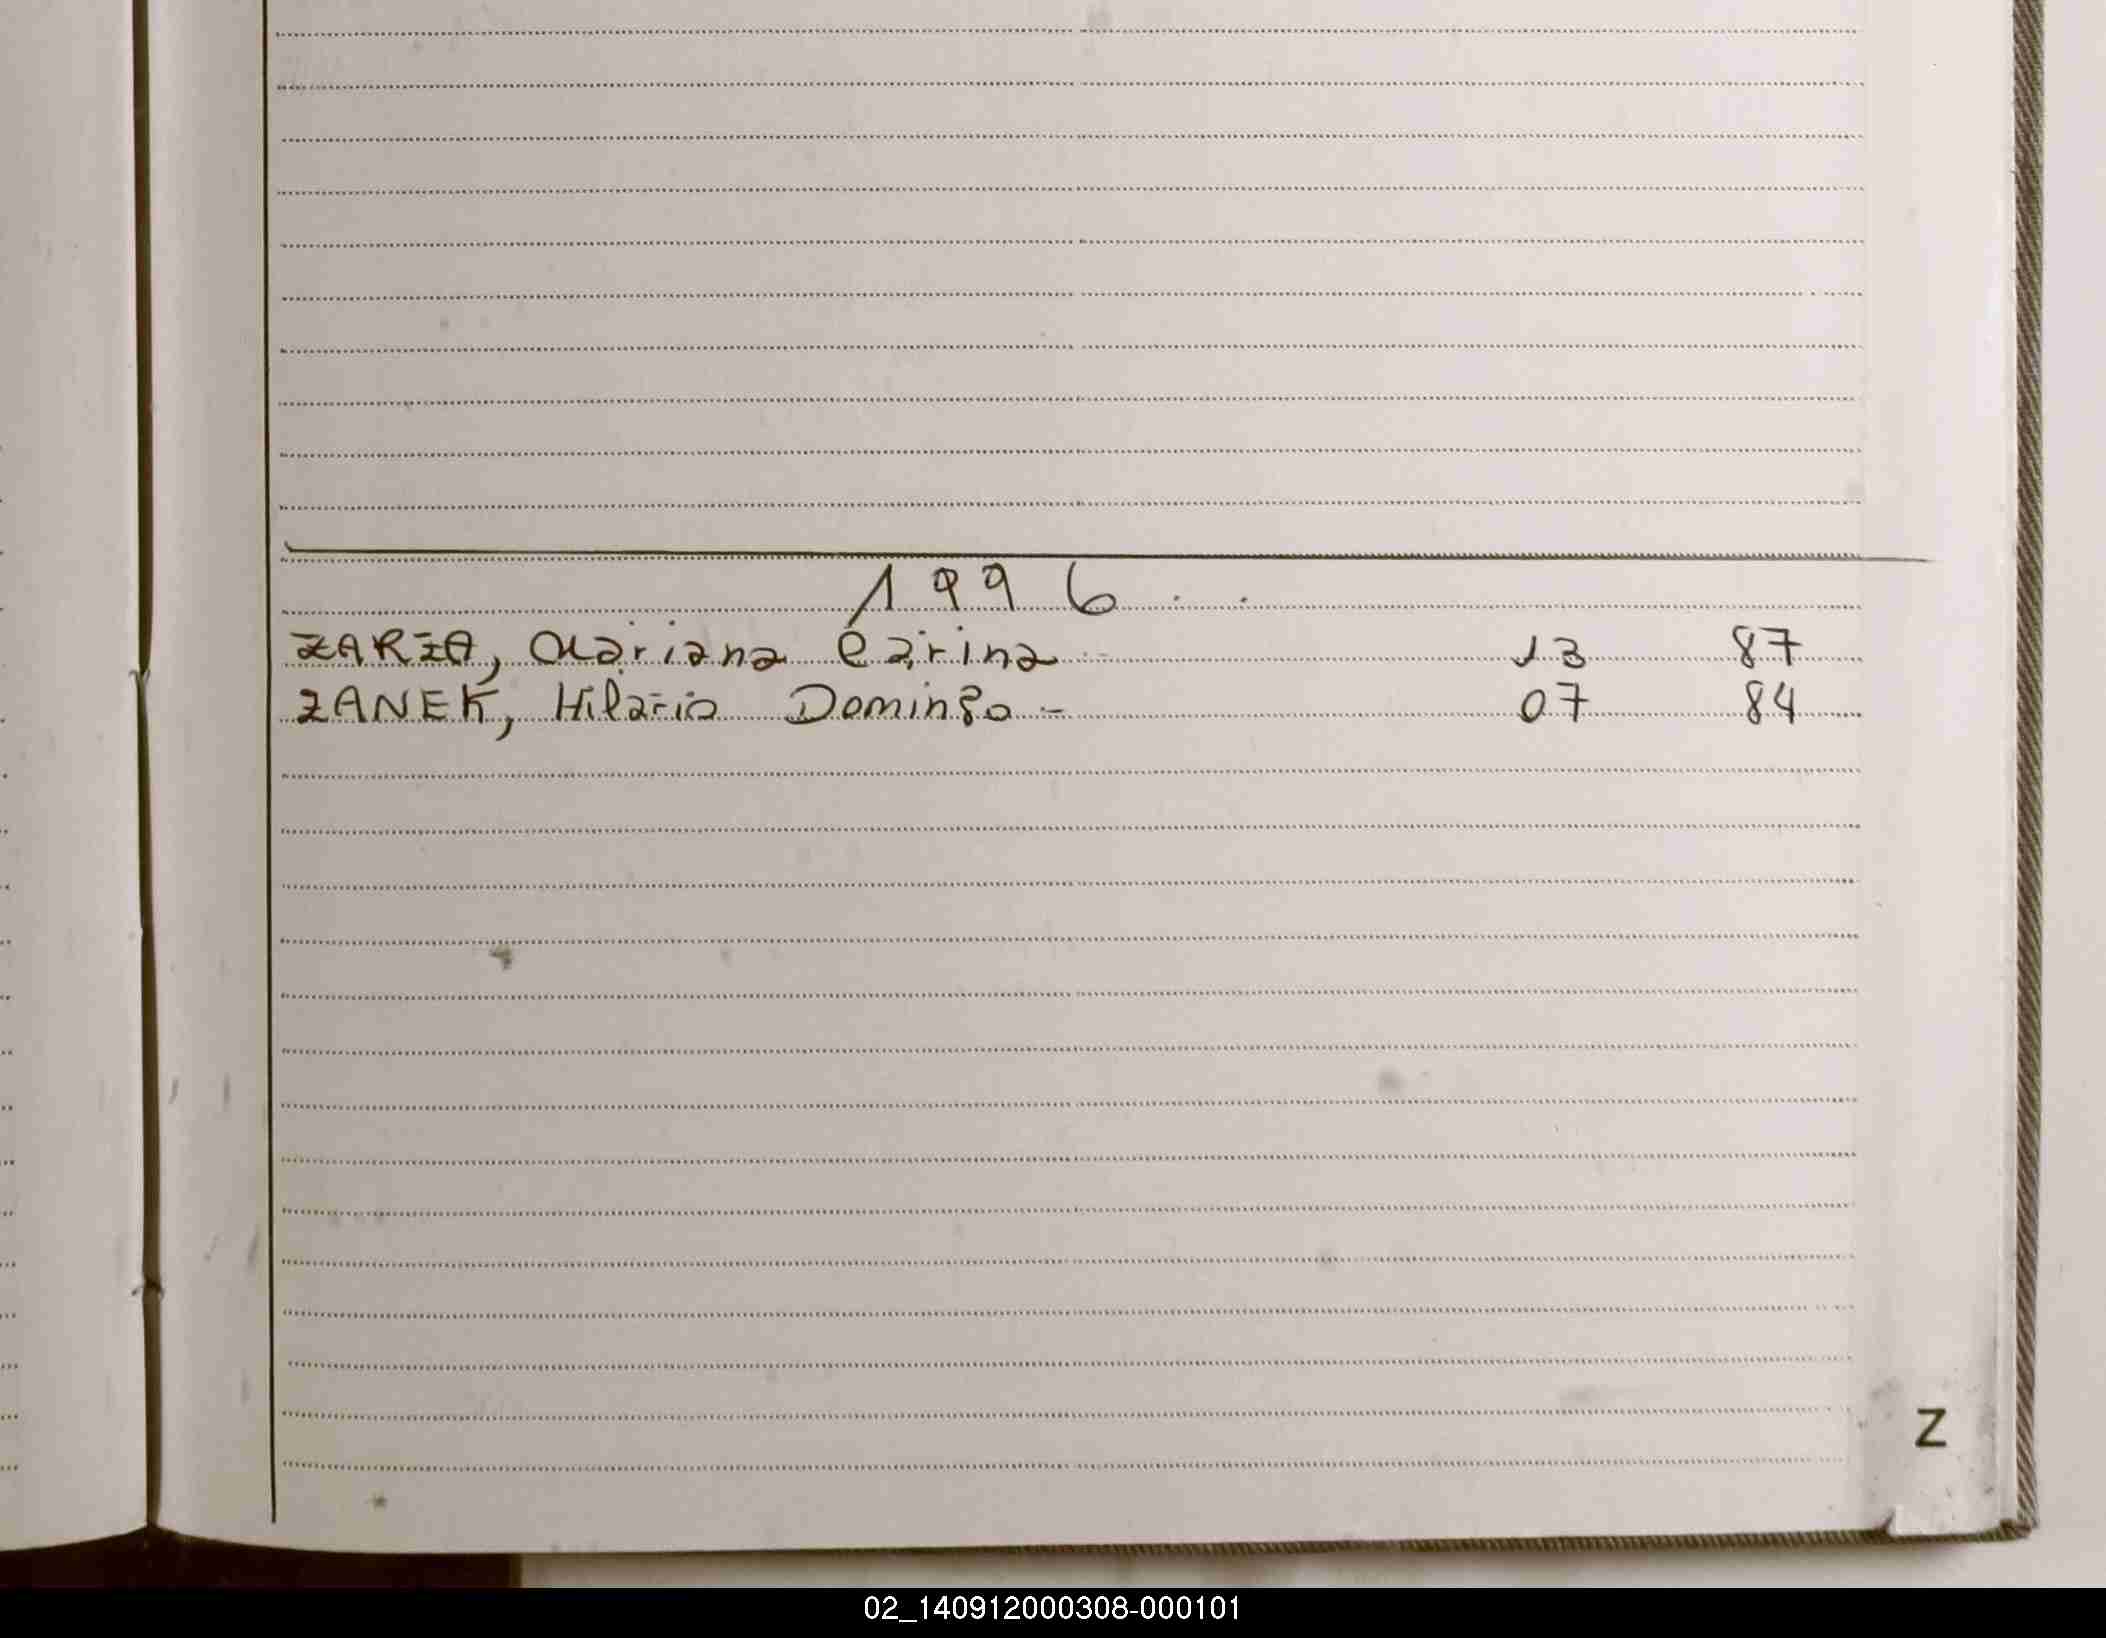 1996
ZARZA, Mariana Carina 13 87
ZANEK, Hilario Domingo - 07 84
Z
02_140912000308-000101